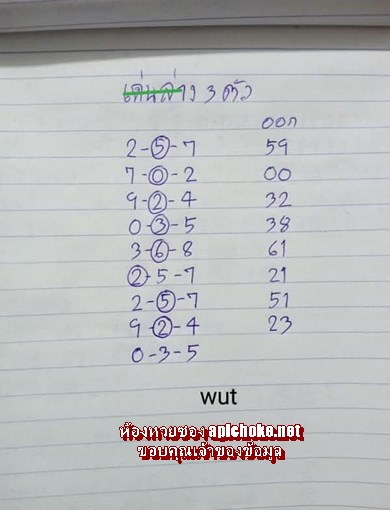 เด่นล่าง 3 ตัว
ออก
2-5-7 59
7-0-2 00
9-2-4 32
0-3-5 38
3-6-8 61
2-5-7 21
2-5-7 51
9-2-4 23
0-3-5
wut
ห้องหวยซอง apichoke.net
ขอบคุณเจ้าของข้อมูล